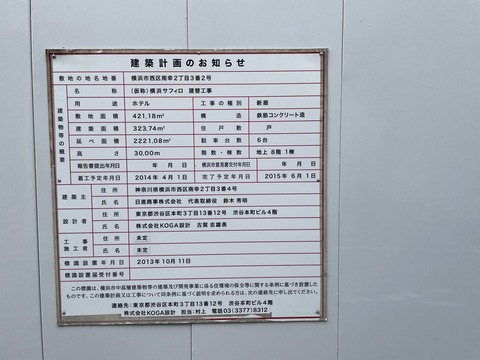 建築計画のお知らせ
敷地の地名地番 横浜市西区南幸2丁目3番2号
建築物等の概要
名称 (仮称)横浜サフィロ 建替工事
用途 ホテル 工事の種別 新築
敷地面積 421.18m² 構造 鉄筋コンクリート造
建築面積 323.74m² 住戸戸数 戸
延べ面積 2221.08m² 駐車台数 6台
高さ 30.00m 階数・棟数 地上 8階 1棟
報告書提出年月日 年 月 日 横浜市意見書交付年月日 年 月 日
着工予定年月日 2014年 4月 1日 完了予定年月日 2015年 6月 1日
建築主 住所 神奈川県横浜市西区南幸2丁目3番4号
氏名 日進商事株式会社 代表取締役 鈴木 秀明
設計者 住所 東京都渋谷区本町3丁目13番12号 渋谷本町ビル4階
氏名 株式会社KOGA設計 古賀 志雄美
工事施工者 住所 未定
氏名 未定
標識設置年月日 2013年 10月 11日
標識設置届受付番号
この標識は、横浜市中高層建築物等の建築及び開発事業に係る住環境の保全等に関する条例に基づき設置した
ものです。この建築計画又は工事について同条例に基づく説明を求められる方は、次の連絡先に申し出てください。
連絡先:東京都渋谷区本町3丁目13番12号 渋谷本町ビル4階
株式会社KOGA設計 担当:村上 電話03(3377)8312